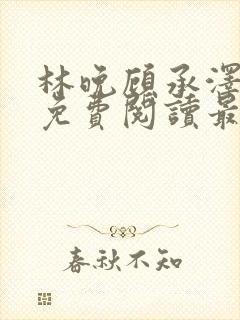 林晚顾承澤
免費閱讀最
春秋不知